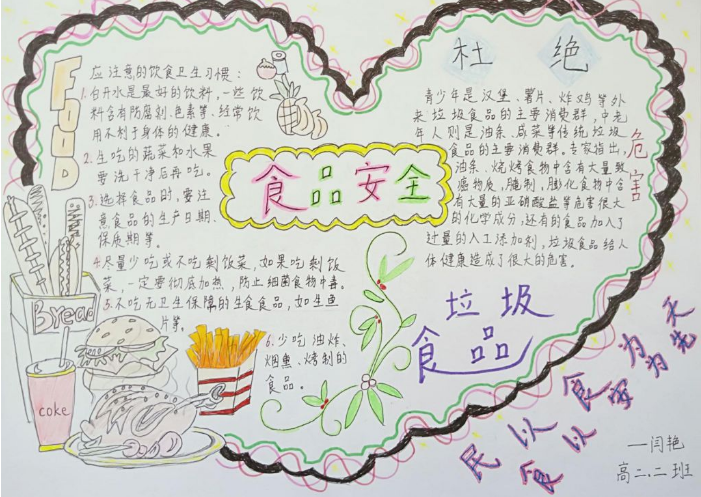 FOOD
应注意的饮食卫生习惯：
1.白开水是最好的饮料，一些饮
料含有防腐剂、色素等、经常饮
用不利于身体的健康。
2.生吃的蔬菜和水果
要洗干净后再吃。
3.选择食品时，要注
意食品的生产日期、
保质期等。
4.尽量少吃或不吃剩饭菜，如果吃剩饭
菜，一定要彻底加热，防止细菌食物中毒。
5.不吃无卫生保障的生食食品，如生鱼
片等。
6.少吃油炸、
烟熏、烤制的
食品。
Bread
coke
食品安全
杜绝
青少年是汉堡、薯片、炸鸡等外
来垃圾食品的主要消费群，中老
年人则是油条、咸菜等传统垃圾
食品的主要消费群。专家指出，
油条、烧烤食物中含有大量致
癌物质，腌制，膨化食物中含
有大量的亚硝酸盐等危害很大
的化学成分，还有的食品加入了
过量的人工添加剂，垃圾食品给人
体健康造成了很大的危害。
危害
垃圾
食品
民以食为天
食以安为先
—闫艳
高二.二班